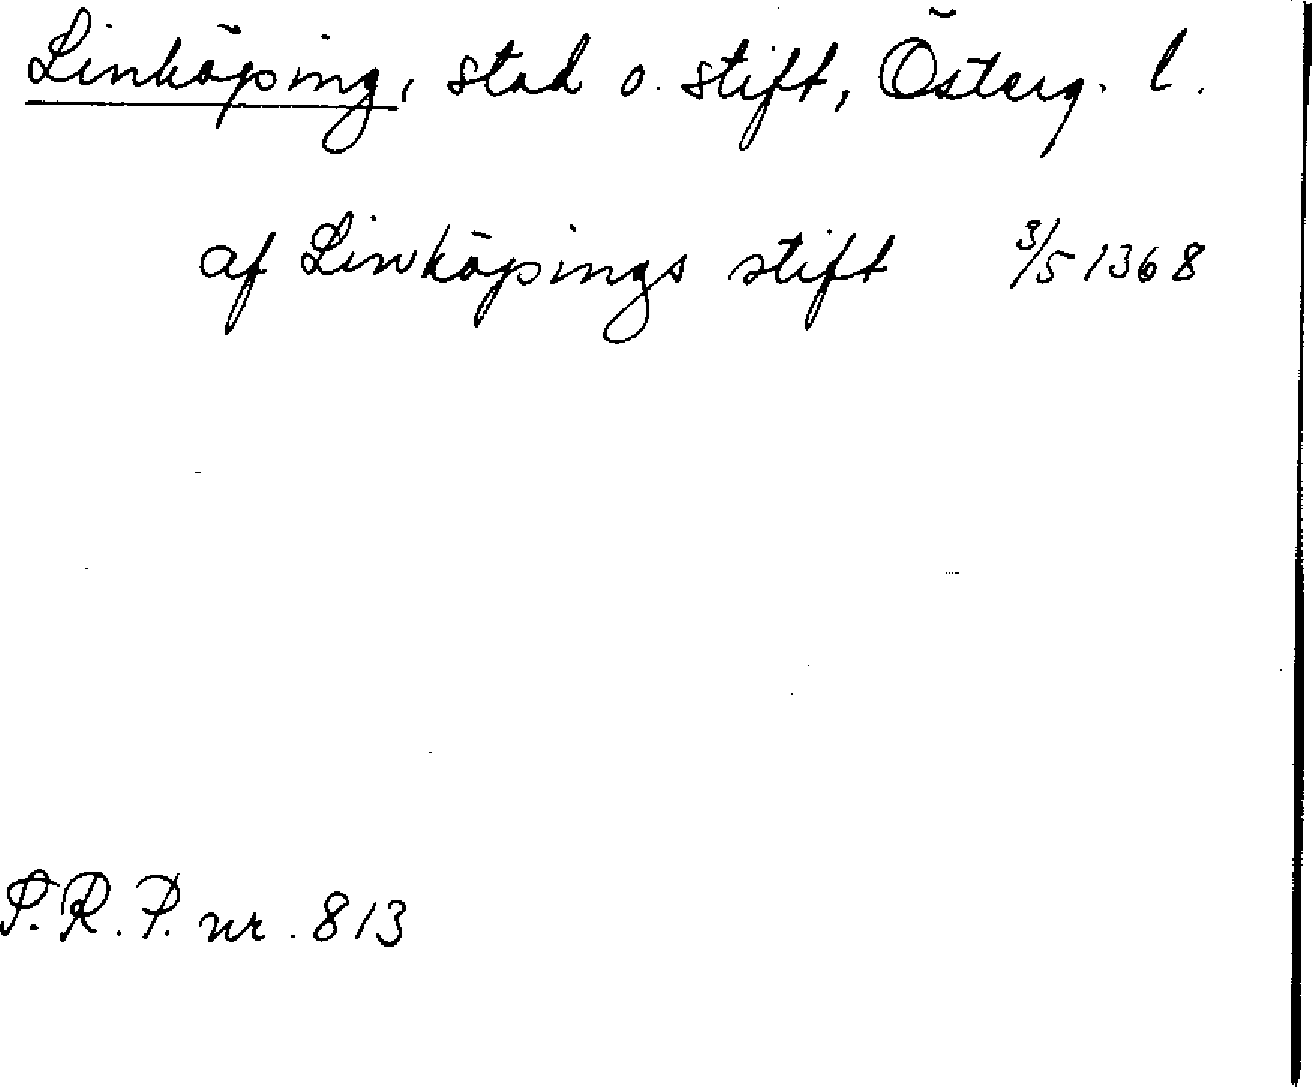 Linköping, stad o. stift, Österg. l.
af Linköpings stift 3/5 1368
P.R.P. nr. 813